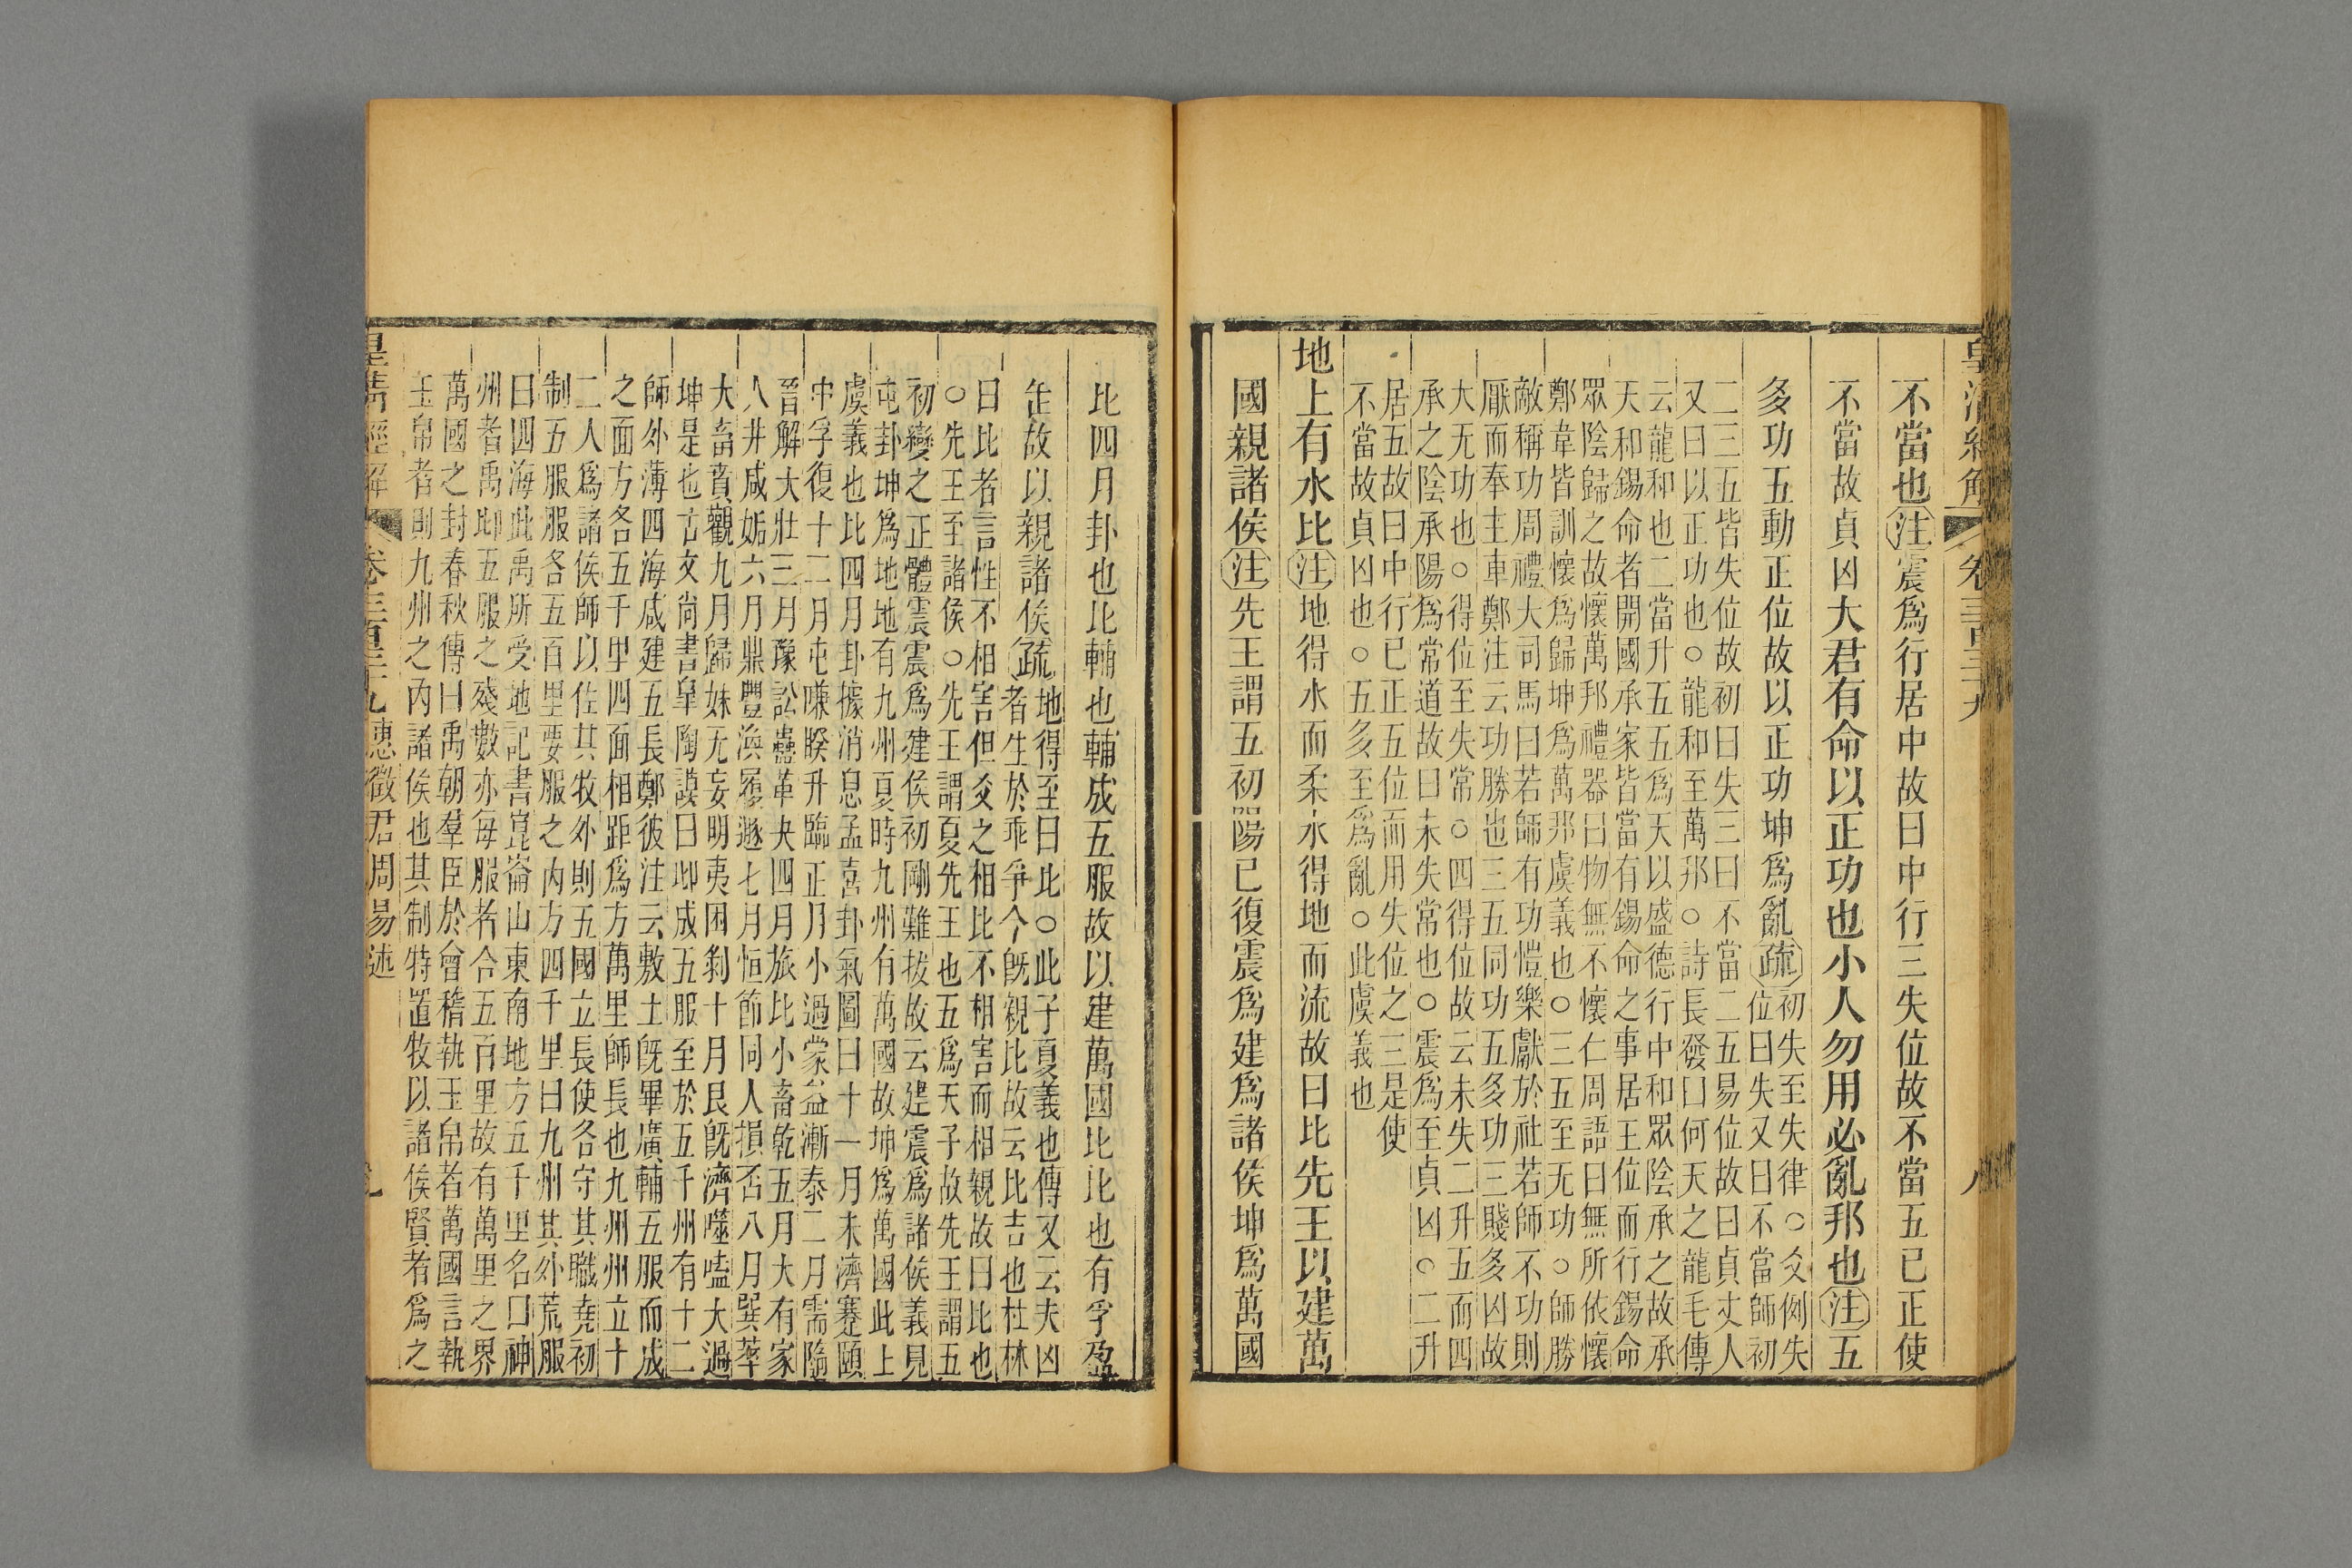 皇清經解 卷三百三十九 八
不當也注震爲行居中故曰中行三失位故不當五已正使
不當故貞凶大君有命以正功也小人勿用必亂邦也注五
多功五動正位故以正功坤爲亂疏初失至失律○爻例失
位曰失又曰不當師初
二三五皆失位故初曰失三曰不當二五易位故曰貞丈人
又曰以正功也○龍和至萬邦○詩長發曰何天之龍毛傳
云龍和也二當升五五爲天以盛德行中和眾陰承之故承
天和錫命者開國承家皆當有錫命之事居王位而行錫命
眾陰歸之故懷萬邦禮器曰物無不懷仁周語曰無所依懷
鄭韋皆訓懷爲歸坤爲萬邦虞義也○三五至无功○師勝
敵稱功周禮大司馬曰若師有功愷樂獻於社若師不功則
厭而奉主車鄭注云功勝也三五同功五多功三賤多凶故
大无功也○得位至失常○四得位故云未失二升五而四
承之陰承陽爲常道故曰未失常也○震爲至貞凶○二升
居五故曰中行已正五位而用失位之三是使
不當故貞凶也○五多至爲亂○此虞義也
地上有水比注地得水而柔水得地而流故曰比先王以建萬
國親諸侯注先王謂五初陽已復震爲建爲諸侯坤爲萬國
比四月卦也比輔也輔成五服故以建萬國比比也有孚盈
缶故以親諸侯疏地得至曰比○此子夏義也傳又云夫凶
者生於乖爭今旣親比故云比吉也杜林
曰比者言性不相害但爻之相比不相害而相親故曰比也
○先王至諸侯○先王謂夏先王也五爲天子故先王謂五
初變之正體震震爲建侯初剛難拔故云建震爲諸侯義見
屯卦坤爲地地有九州夏時九州有萬國故坤爲萬國此上
虞義也比四月卦據消息孟喜卦氣圖曰十一月未濟蹇頤
中孚復十二月屯嗛睽升臨正月小過蒙益漸泰二月需隨
晉解大壯三月豫訟蠱革夬四月旅比小畜乾五月大有家
人井咸姤六月鼎豐渙履遯七月恒節同人損否八月巽萃
大畜賁觀九月歸妹无妄明夷困剝十月艮旣濟噬嗑大過
坤是也古文尚書皐陶謨曰卹成五服至於五千州有十二
師外薄四海咸建五長鄭彼注云敷土旣畢廣輔五服而成
之面方各五千里四面相距爲方萬里師長也九州州立十
二人爲諸侯師以佐其牧外則五國立長使各守其職堯初
制五服服各五百里要服之內方四千里曰九州其外荒服
曰四海此禹所受地記書崑崙山東南地方五千里名曰神
州者禹卹五服之殘數亦每服者合五百里故有萬里之界
萬國之封春秋傳曰禹朝羣臣於會稽執玉帛者萬國言執
玉帛者則九州之內諸侯也其制特置牧以諸侯賢者爲之
皇清經解 卷三百三十九 惠徵君周易述